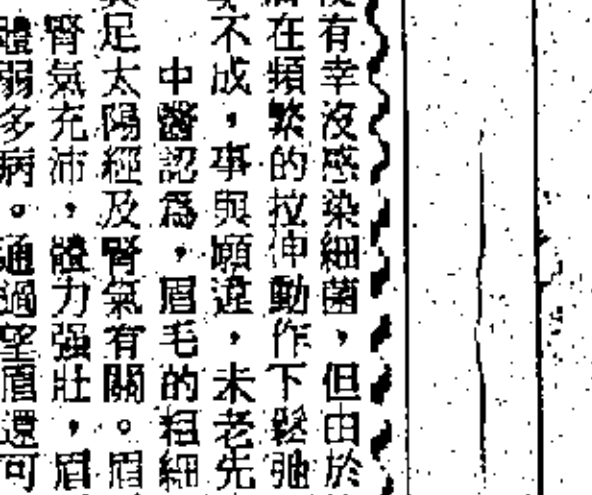 有幸沒感染細菌，但由於
在頻繁的拉伸動作下鬆弛
不成，事與願違，未老先
中醫認爲，眉毛的粗細
足太陽經及腎氣有關。眉
腎氣充沛，體力强壯，眉
體弱多病。通過望眉還可